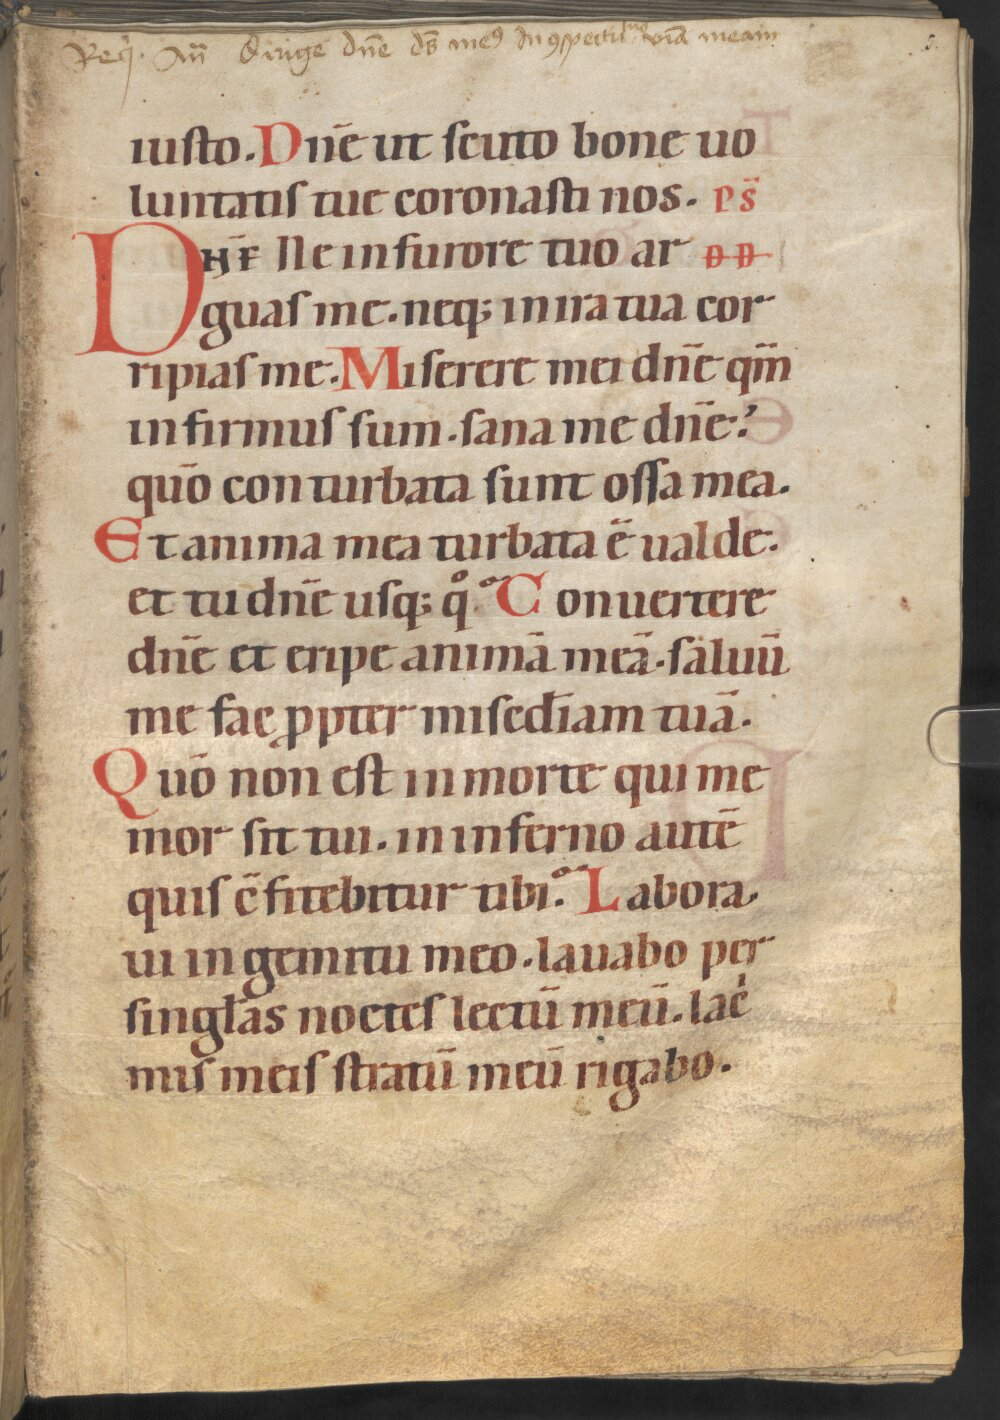 Req̄. Añ Dirige dn̄e ds̄ meꝰ In ꝯspectu tuo viā meam
5.
iusto. Dn̄e ut scuto bone uo
luntatis tue coronasti nos. Ps̄
Dn̄e Ne in furore tuo ar DD
guas me. neq; in ira tua cor
ripias me. Miserere mei dn̄e qm̄
infirmus sum. sana me dn̄e:
quō conturbata sunt ossa mea.
Et anima mea turbata ē ualde.
et tu dn̄e usq; qͦ. Conuertere
dn̄e et eripe animā meā. saluū
me fac ꝓpter misc̄diam tuā.
Quō non est in morte qui me
mor sit tui. in inferno autē
quis c̄fitebitur tibi. Labora
ui in gemitu meo. lauabo per
singl̄as noctes lectū meū. lac̄
mis meis stratū meū rigabo.